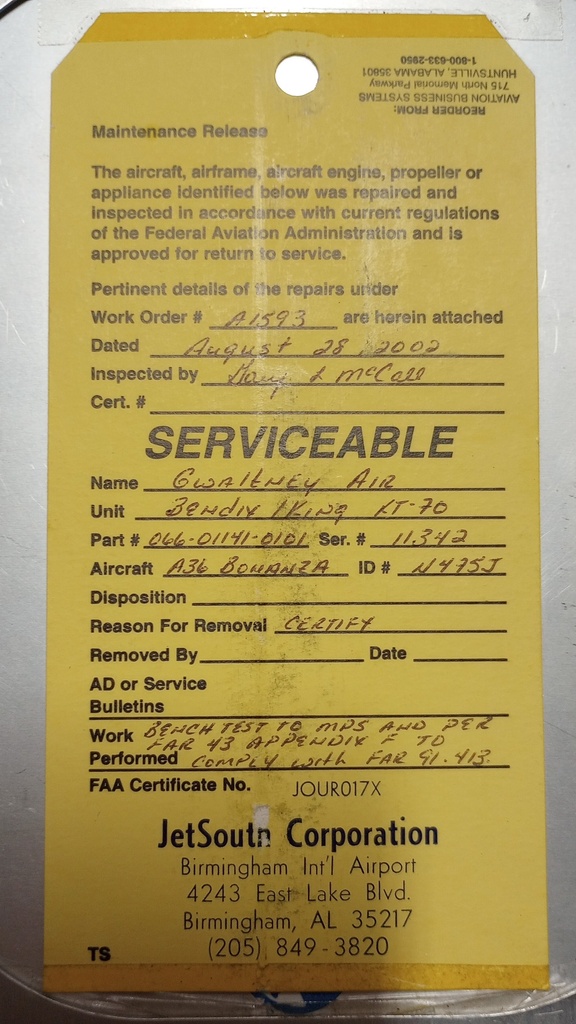 REORDER FROM:
AVIATION BUSINESS SYSTEMS
715 North Memorial Parkway
HUNTSVILLE, ALABAMA 35801
1-800-633-2950
Maintenance Release
The aircraft, airframe, aircraft engine, propeller or
appliance identified below was repaired and
inspected in accordance with current regulations
of the Federal Aviation Administration and is
approved for return to service.
Pertinent details of the repairs under
Work Order # A1593 are herein attached
Dated August 28, 2002
Inspected by L McCall
Cert. #
SERVICEABLE
Name Gwaltney Air
Unit Bendix / King KT-70
Part # 066-01141-0101 Ser. # 11342
Aircraft A36 BONANZA ID # N475J
Disposition
Reason For Removal CERTIFY
Removed By Date
AD or Service
Bulletins
Work BENCH TEST TO MPS AND PER
FAR 43 APPENDIX F TO
Performed COMPLY with FAR 91.413.
FAA Certificate No. JOUR017X
JetSouth Corporation
Birmingham Int'l Airport
4243 East Lake Blvd.
Birmingham, AL 35217
TS (205) 849-3820